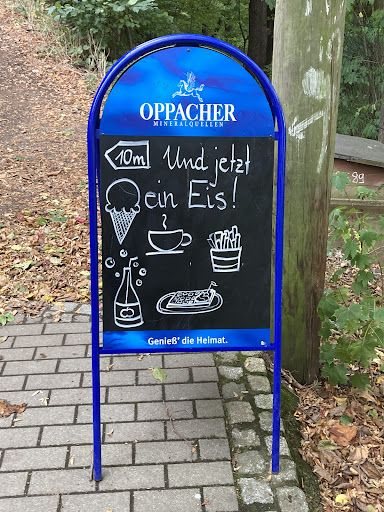 OPPACHER
MINERALQUELLEN
10m Und jetzt
ein Eis!
Genieß' die Heimat.
99